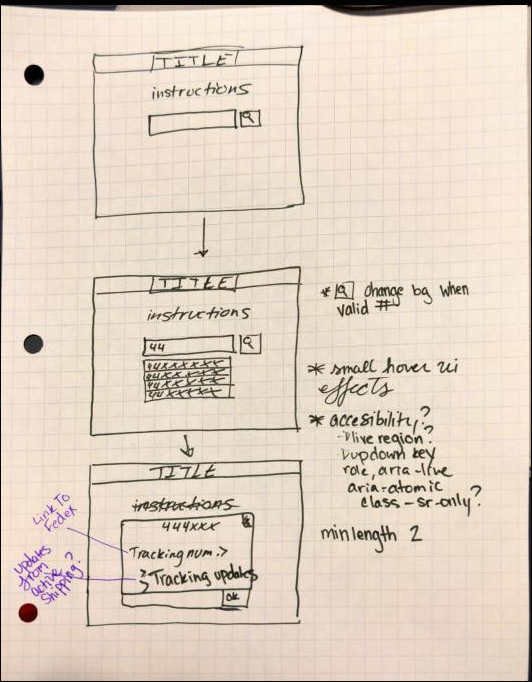 TITLE
instructions
TITLE
instructions
44
44XXXXXX
44XXXXXX
44XXXXXX
44XXXXX
* change bg when
valid #
* small hover ui
effects
* accesibility?
live region?
updown key
role, aria-live
aria-atomic
class-sr-only?
min length 2
TITLE
instructions
444XXX
x
Tracking num.>
Tracking updates
OK
Link To
Fedex
updates
from
active
Shipping?